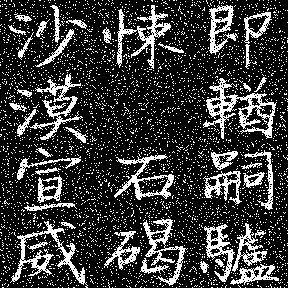 即輶嗣驢
悚 石碣
沙漠宣威